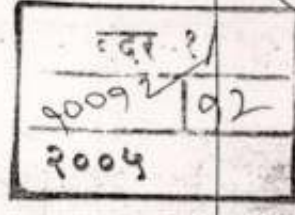 वदर १/
१००१२ | १२
२००५